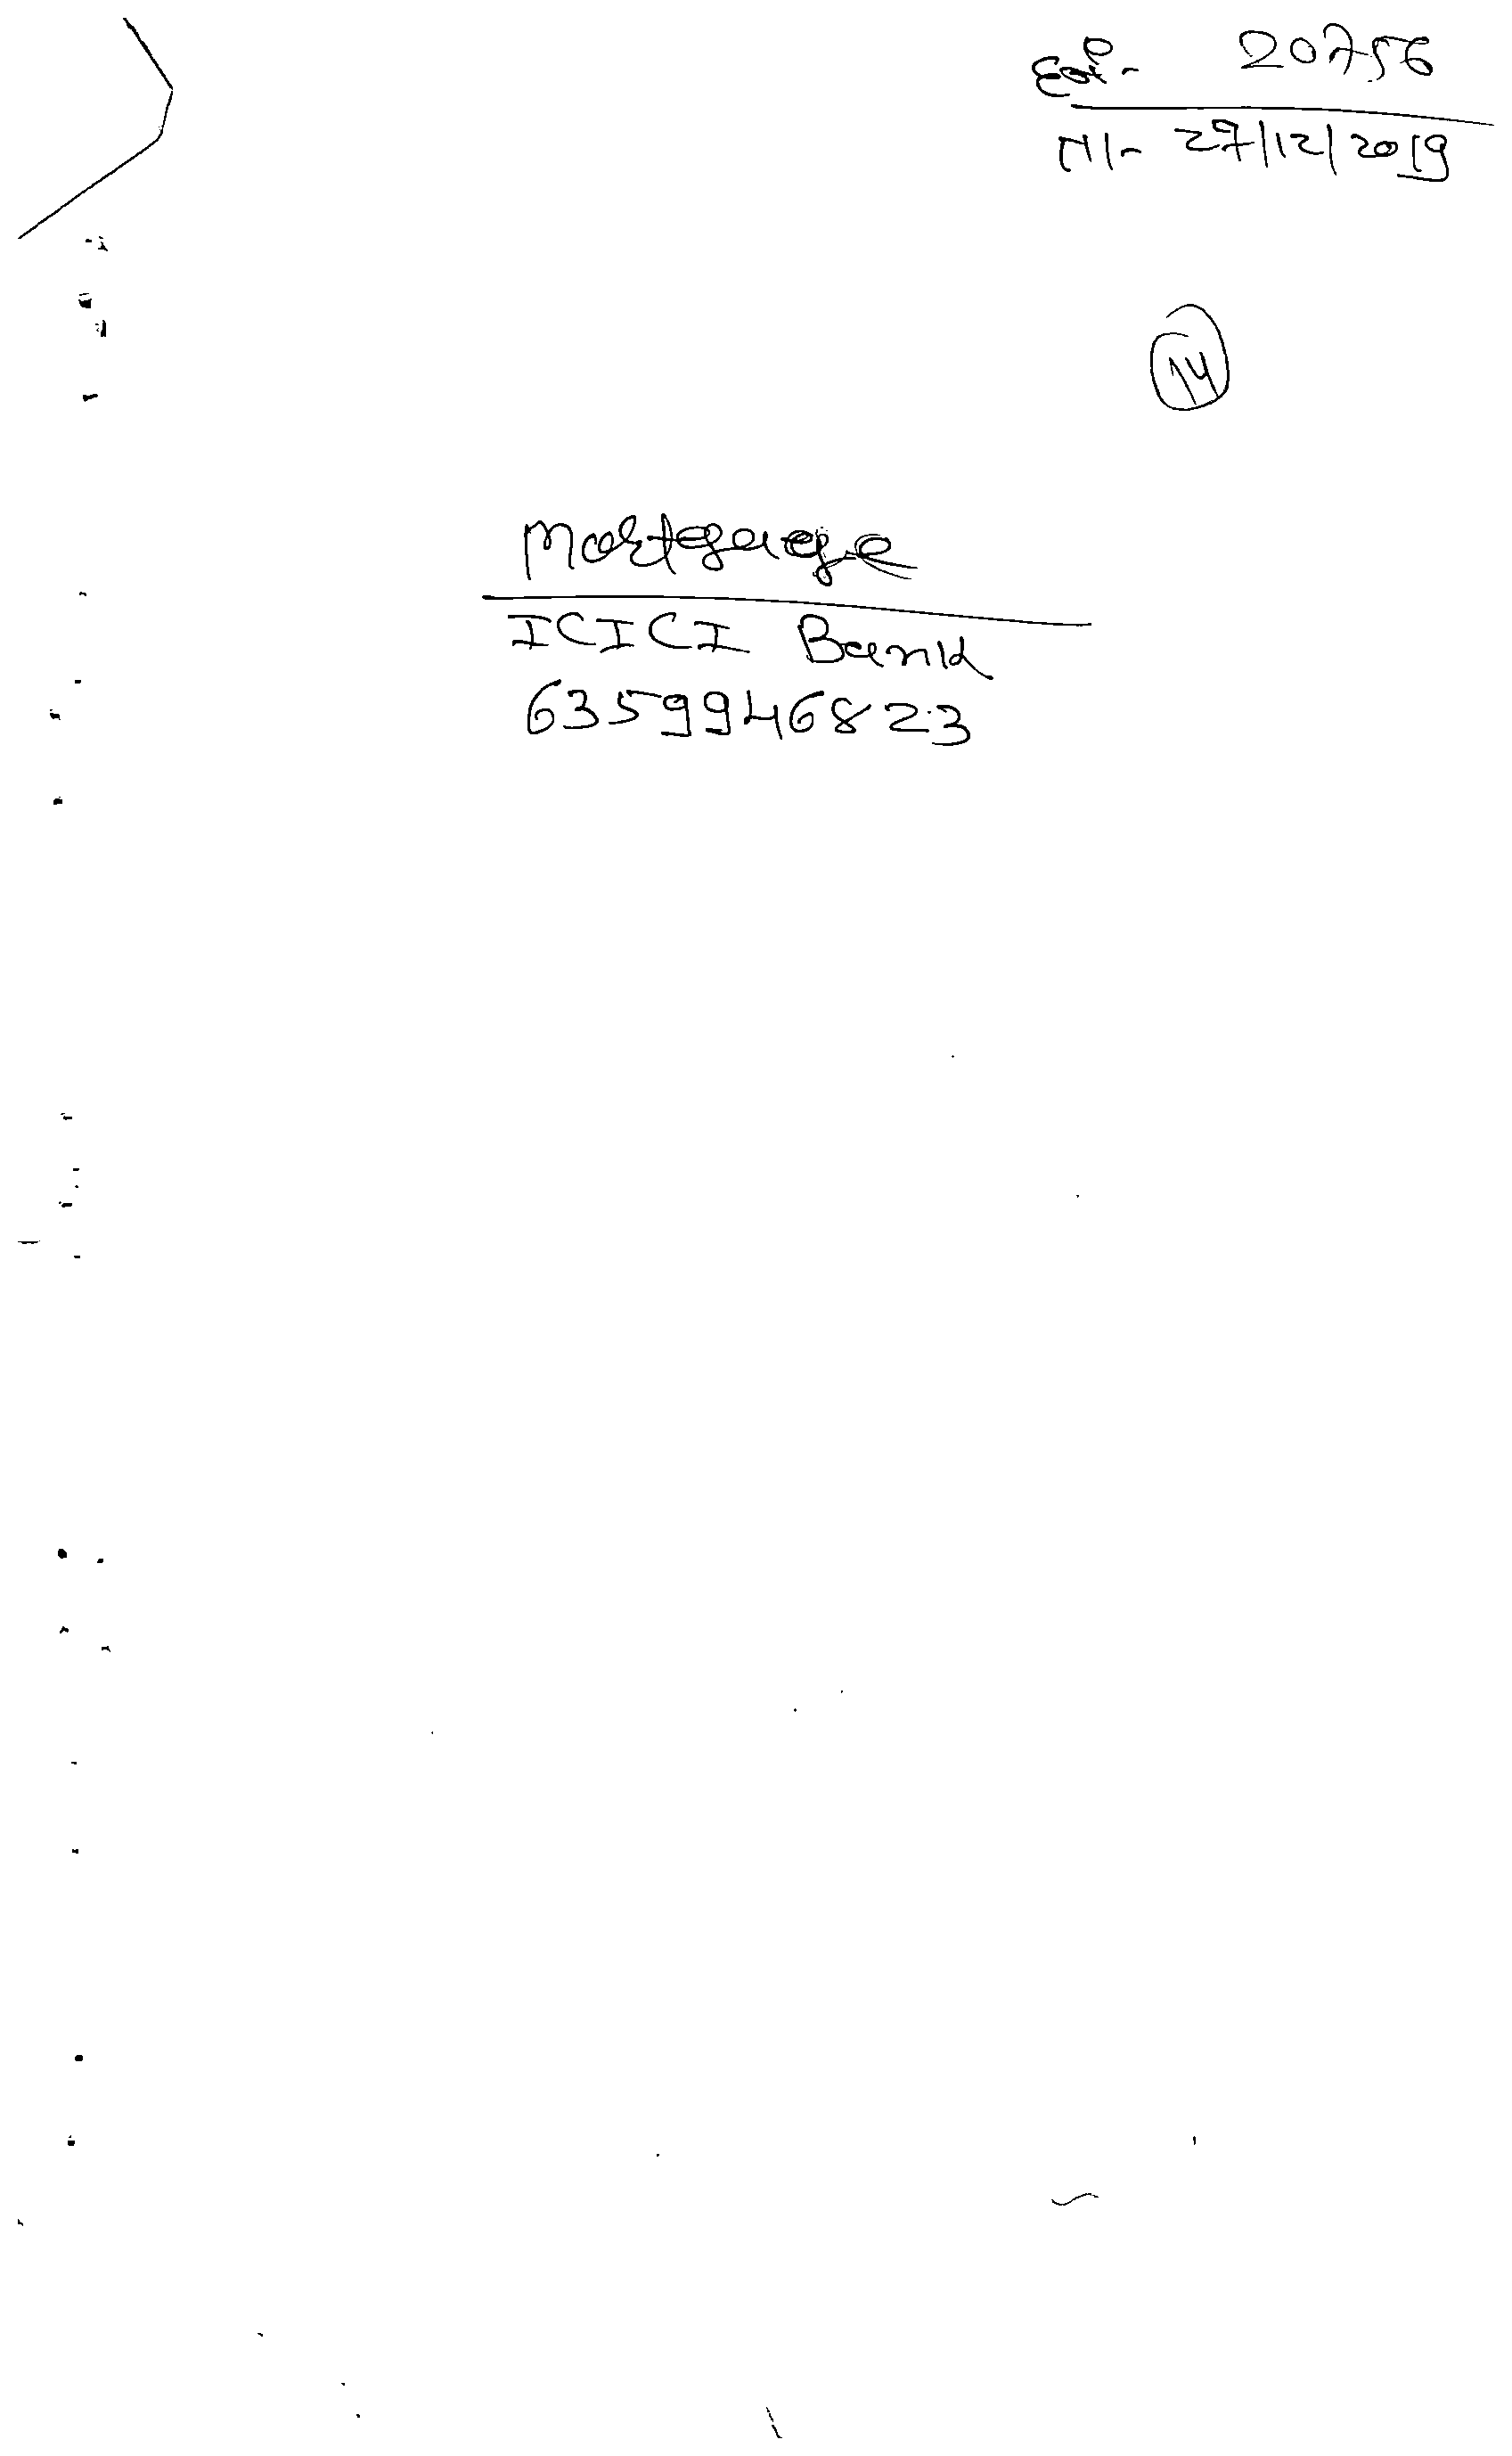 દસ્ત- 20756
તા- 27/12/2019
14
Mortgage
ICICI Bank
6359946823